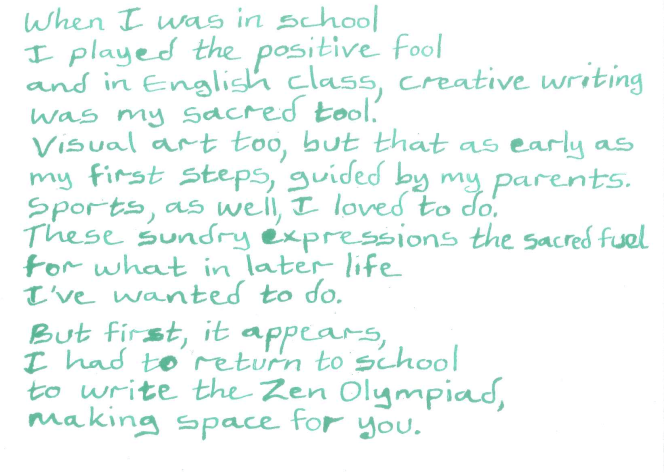 When I was in school
I played the positive fool
and in English class, creative writing
was my sacred tool.
Visual art too, but that as early as
my first steps, guided by my parents.
Sports, as well, I loved to do.
These sundry expressions the sacred fuel
for what in later life
I've wanted to do.
But first, it appears,
I had to return to school
to write the Zen Olympiad,
making space for you.